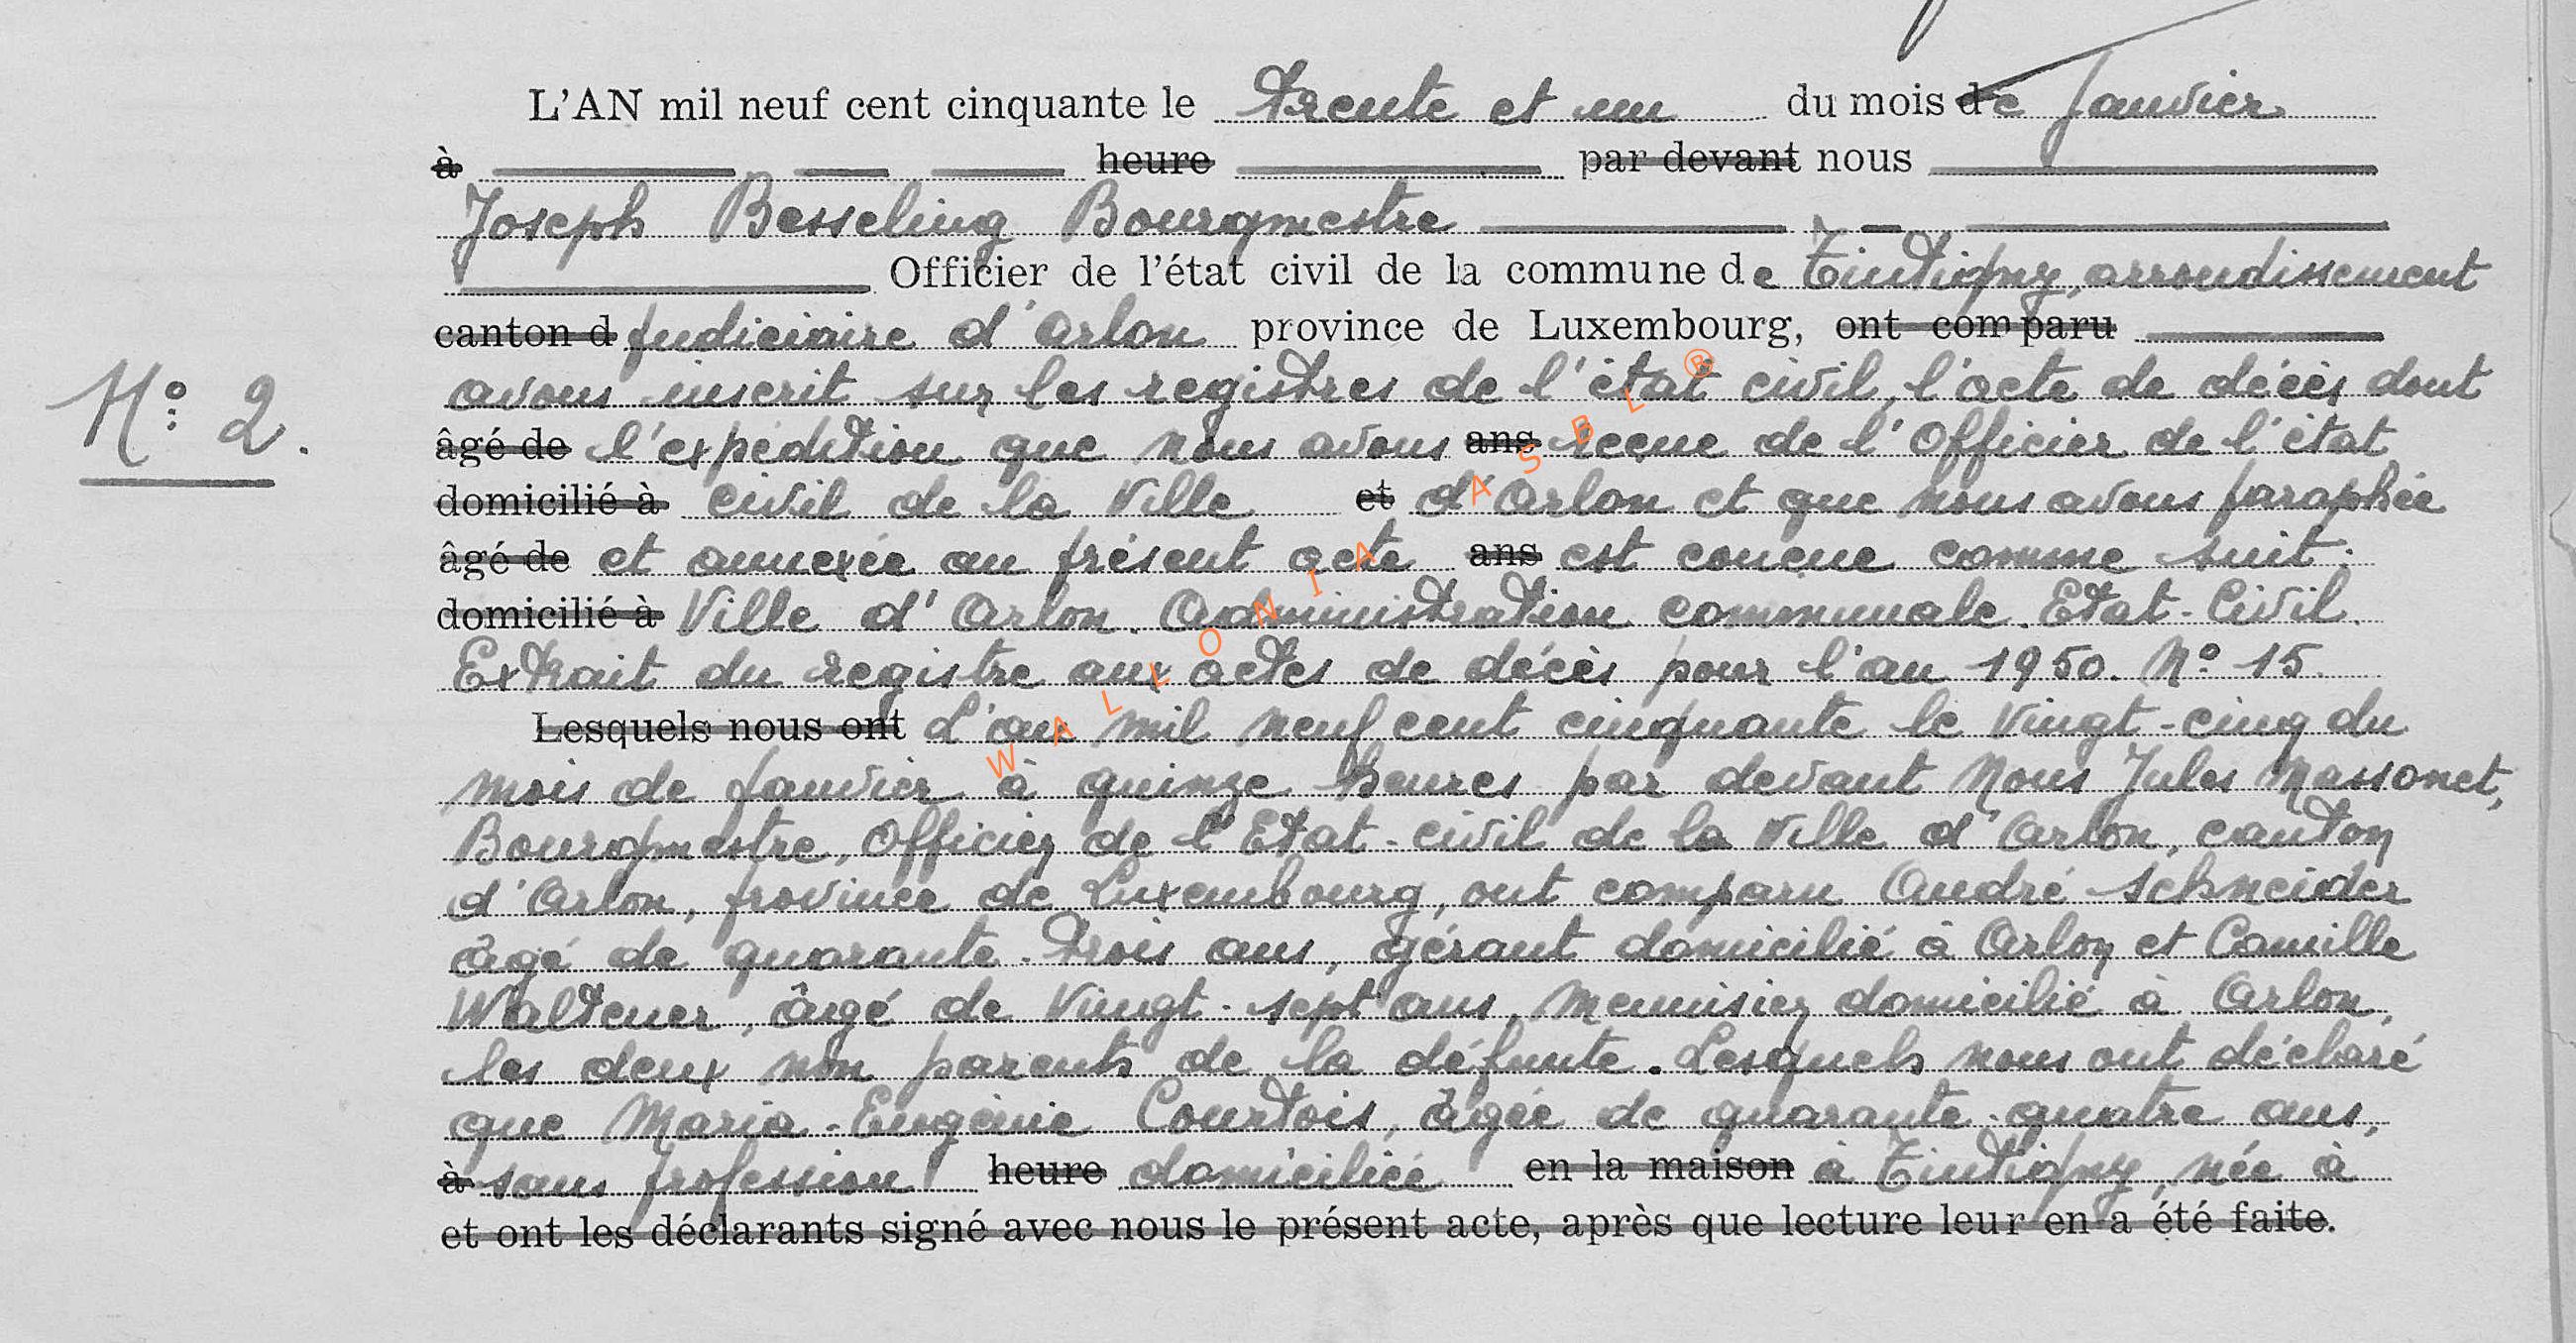 L'AN mil neuf cent cinquante le trente et un du mois de Janvier
à heure par devant nous
Joseph Besseling Bourgmestre
Officier de l'état civil de la commune de Tintigny, arrondissement
canton d judiciaire d'Arlon province de Luxembourg, ont comparu
avons inscrit sur les registres de l'état civil, l'acte de décès dont
âgé de l'expédition que nous avons ans reçue de l'Officier de l'état
N° 2.
domicilié à civil de la Ville et d'Arlon et que nous avons paraphée
âgé de et annexée au présent acte ans est concue comme suit:
domicilié à Ville d'Arlon. Administration communale. Etat-Civil.
Extrait du registre aux actes de décès pour l'an 1950. N° 15.
Lesquels nous ont L'an mil neuf cent cinquante le vingt-cinq du
mois de janvier à quinze heures par devant Nous Jules Massonet,
Bourgmestre, Officier de l'Etat-civil de la Ville d'Arlon, canton
d'Arlon, province de Luxembourg, ont comparu André Schneider
âgé de quarante-trois ans, gérant domicilié à Arlon et Camille
Waltener, âgé de vingt-sept ans, menuisier domicilié à Arlon,
les deux non parents de la défunte. Lesquels nous ont déclaré
que Maria-Eugénie Courtois, âgée de quarante-quatre ans,
à sans profession heure domiciliée en la maison à Tintigny, née à
et ont les déclarants signé avec nous le présent acte, après que lecture leur en a été faite.
WALLONIA ASBL ®